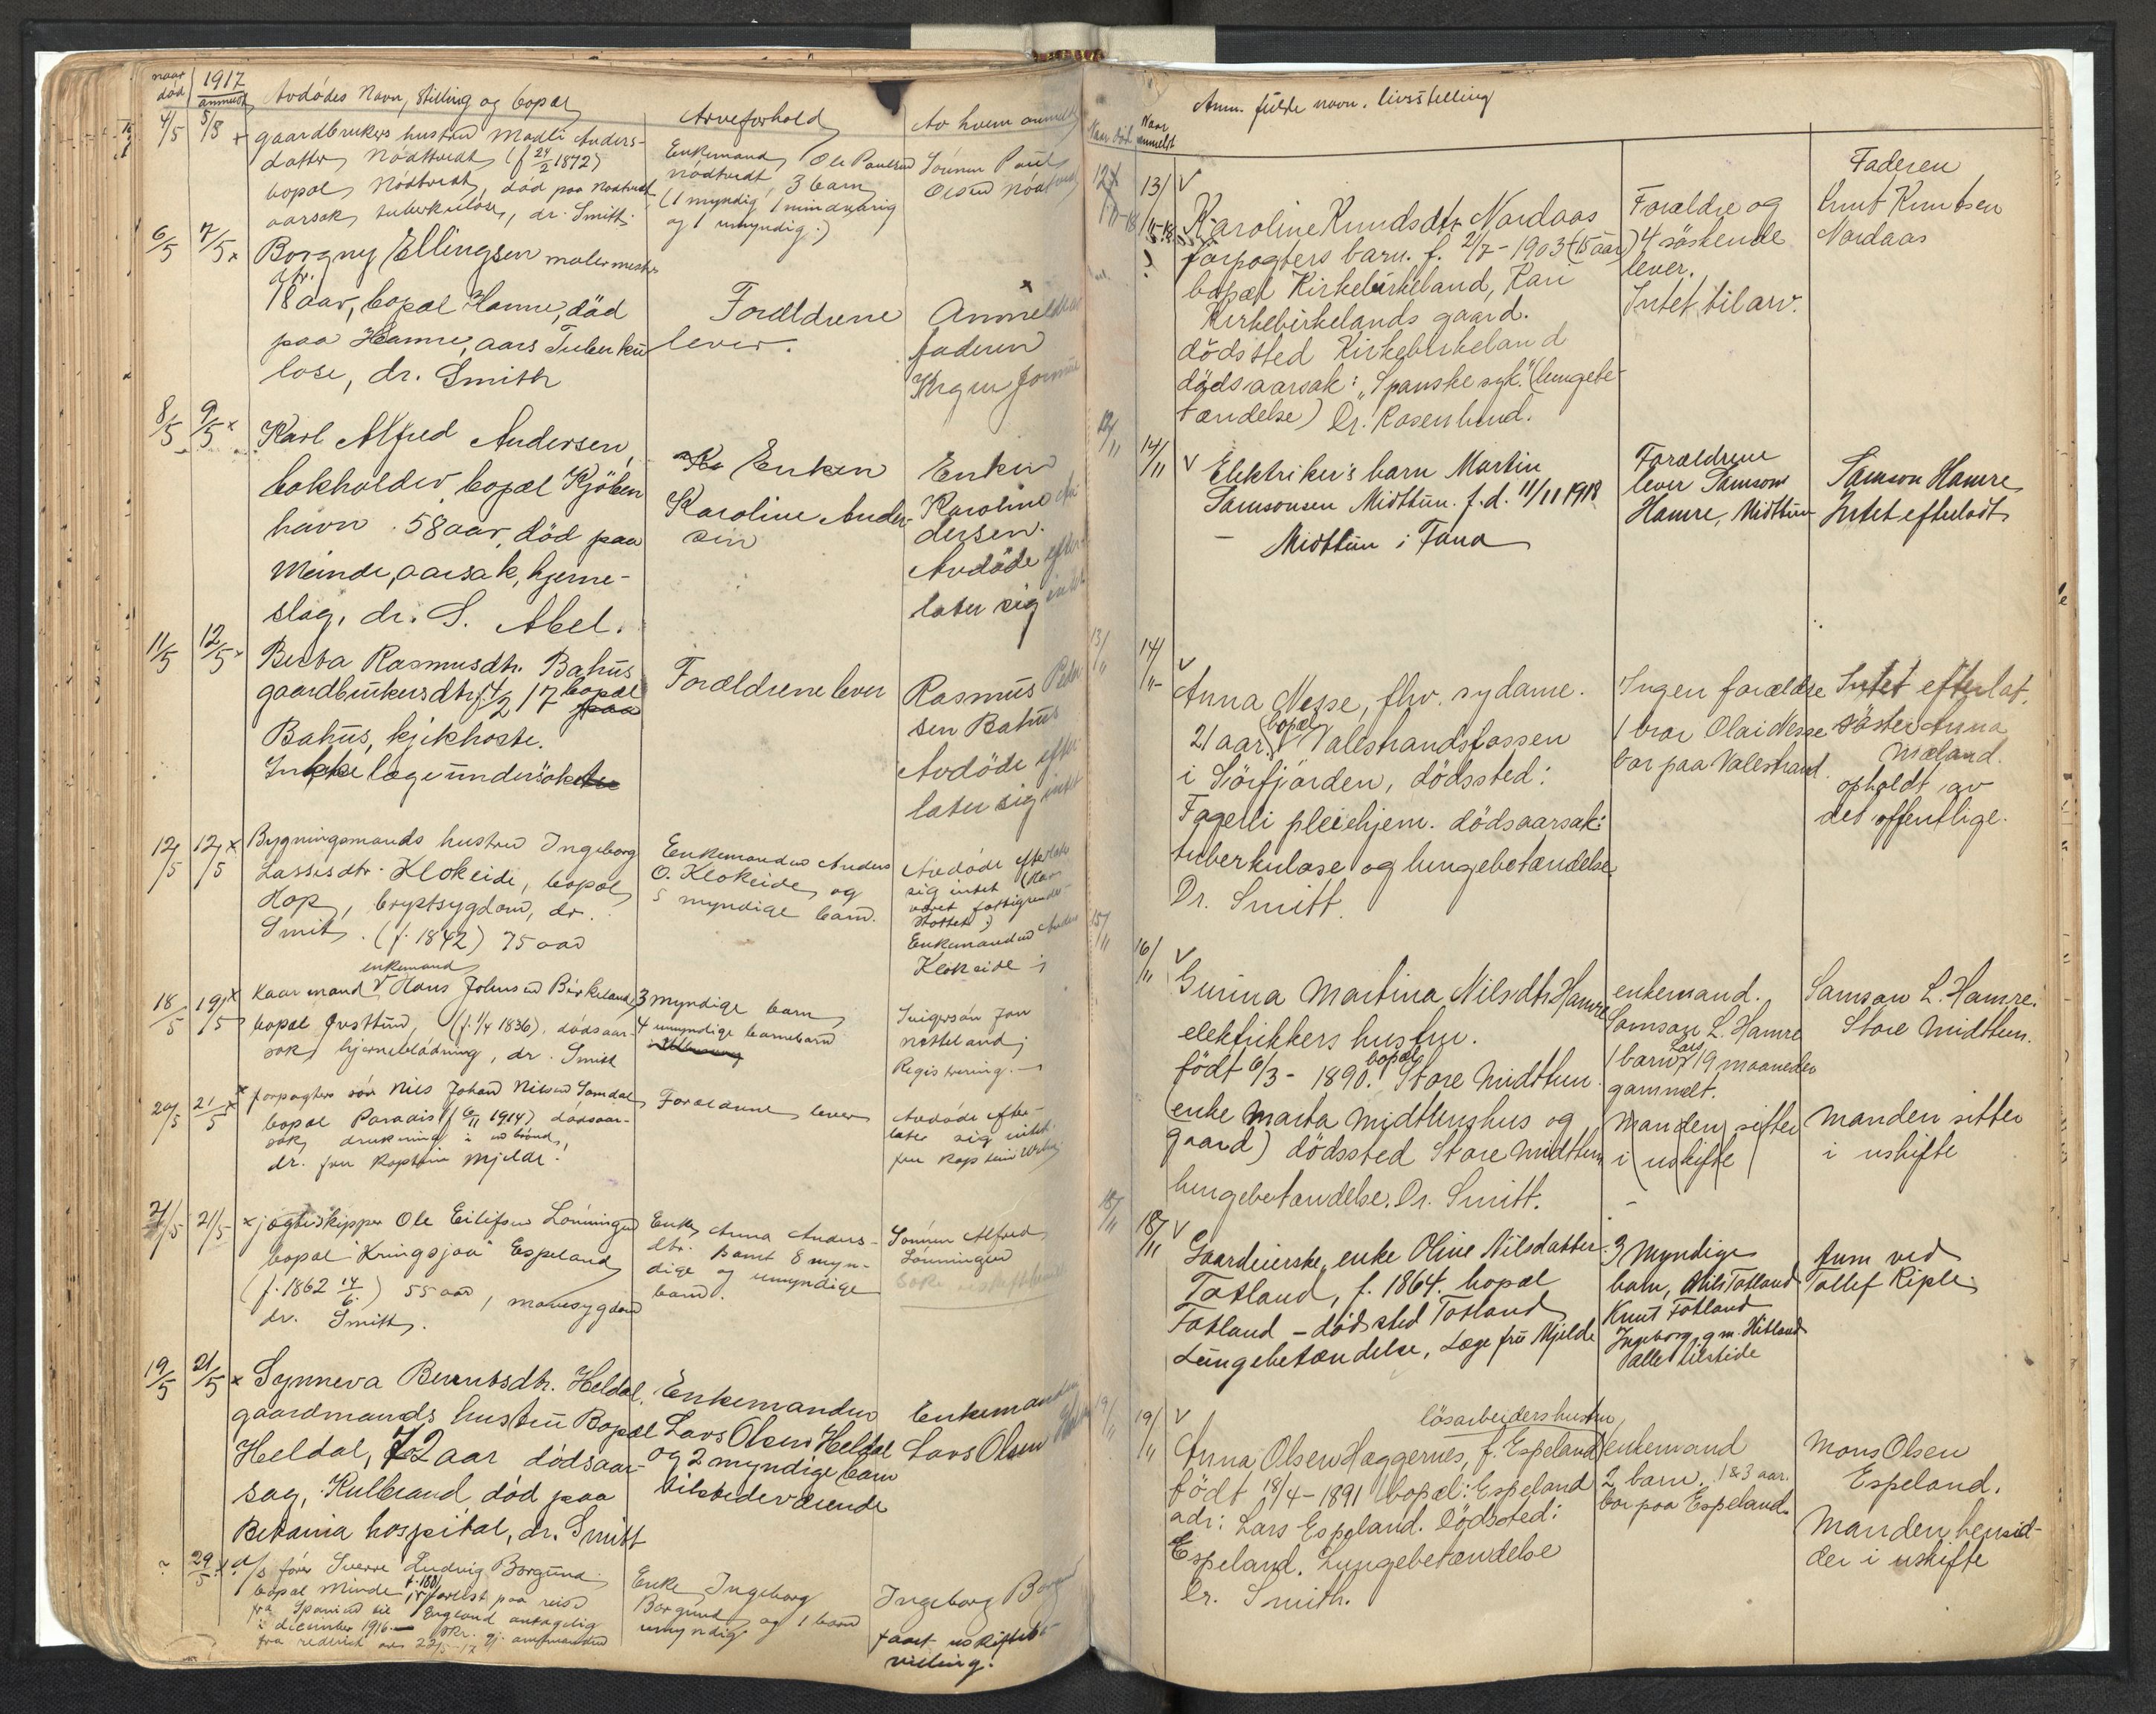 naar død 1917 anmeldt Avdødes Navn, Stilling og bopæl Arveforhold Av hvem anmeldt
4/5 5/5 + gaardbrukers hustru Madli Anders-
datter Nødtvedt (f 24/2 1872)
bopæl Nødtvedt, død paa Nødtvedt
aarsak tuberkulose, dr. Smitt.
Enkemand Ole Paulsen
Nødtvedt 3 barn
(1 myndig 1 mindreaarig
og 1 umyndig.)
Sønnen Paul
Olsen Nødtvedt
6/5 7/5 x Borgny Ellingsen malermester
dtr.
18 aar, bopæl Hamre, død
paa Hamre, aars Tuberku
lose, dr. Smith
Forældrene
lever.
x
Anmelderen
faderen
8/5 9/5 x Karl Alfred Andersen,
bokholder bopæl Kjöben
havn. 58 aar, död paa
Minde, aarsak, hjerne-
slag, dr. S. Abel.
Enken
Karoline Ander-
sen
Enken
Karoline An-
dersen.
Avdöde efter
later sig intet
11/5 12/5 x Berta Rasmusdtr. Bahus
gaardbrukersdtr f 4/2 17 bopæl
paa
Bahus, kjikhoste.
Ikke lægeundersökt
Forældrene lever
Rasmus Peder
sen Bahus
Avdöde efter
later sig intet
12/5 12/5 x Bygningsmands hustru Ingeborg
Lassesdtr. Klokeide, bopæl
Hop, brystsygdom, dr.
Smitt. (f. 1842) 75 aar
Enkemanden Anders
O. Klokeide og
5 myndige barn.
Avdøde efterlater
sig intet (Har
været fattigunder-
støttet)
Enkemanden Anders
Klokeide
enkemand
18/5 19/5 x Kaarmand Hans Johnsen Birkeland
bopæl Øvsttun, (f. 1/4 1836), dødsaar-
sak hjerneblødning, dr. Smitt
3 myndige barn
4 umyndige barnebarn
Svigersøn Jon
Natteland
Registrering.
20/5 21/5 x forpagters søn Nils Johan Nilsen Somdal
bopæl Paradis (f 6/11 1914) dødsaar-
sak drukning i en brønd,
dr. fru Kaptein Mjelde.
Forældrene lever
Avdøde efter-
later sig intet.
21/5 21/5 x jægtskipper Ole Eilifsen Lønningen
bopæl "Kringsjaa" Espeland
(f. 1862 14/6) 55 aar, mavesygdom
dr. Smitt.
Enke Anna Anders-
dtr. samt 8 myn-
dige og umyndige
barn.
Sønnen Alfred
Lønningen
19/5 21/5 x Synneva Berntsdtr. Heldal.
gaardmands hustru Bopæl
Heldal, 72 aar dödsaar-
sag, Kulbrand död paa
Betania hospital, dr. Smitt
Enkemanden
Lars Olsen Heldal
og 2 myndige barn
tilstedeværende
Enkemanden
Lars Olsen
? 29/5 x d/s fører Sverre Ludvig Borgund
f. 1881
bopæl Minde, forlist paa reise
fra Spanien til England antagelig
i december 1916.
Enke Ingeborg
Borgund og 1 barn
umyndig
Ingeborg Borgund
faaet uskiftebe-
villing.
Naar död Naar anmeldt Anm. fulde navn. livsstilling
13/11-18 v Karoline Knudsdtr Nordaas
forpagters barn. f. 2/7-1903 (15 aar)
bopæl Kirkebirkeland, Kari
Kirkebirkelands gaard.
dödssted Kirkebirkeland
dödsaarsak: "Spanske syk." (lungebe-
tændelse) Dr. Rosenlund.
Forældre og
4 söskende
lever.
Intet til arv.
Faderen
Knut Knutsen
Nordaas
12/11 14/11 v Elektriker's barn Martin
Samsonsen Midttun. f. d. 11/11 1918
- Midttun i Fana
Forældrene
lever Samson
Hamre, Midttun
Samson Hamre
Intet efterladt
13/11 14/11 v
Anna Nesse, fhv. sydame.
21 aar. bopæl Valestrandsfossen
i Sörfjorden, dödssted:
Fagerli pleiehjem. dödsaarsak:
tuberkulose og lungebetændelse
Dr. Smitt.
Ingen forældre
1 bror Olai Nesse
bor paa Valestrand.
Intet efterlat.
söster Anna
Mæland.
opholdt av
det offentlige.
15/11 16/11 v
Gurina Martina Nilsdtr Hamre
elektrikkers hustru.
født 6/3 - 1890. bopæl Store Midttun
(enke Marta Midttunshus og
gaard) dödssted Store Midttun
lungebetændelse. Dr. Smitt.
enkemand.
Samson L. Hamre
1 barn Lars 19 maaneder
gammelt.
Manden sitter
i uskifte
Samson L. Hamre.
Store Midttun.
Manden sitter
i uskifte
18/11 18/11 v
Gaardeierske, enke Oline Nilsdatter
Totland, f. 1864. bopæl
Totland - dödssted Totland
Lungebetændelse, Læge fru Mjelde
3 Myndige
barn, Nils Totland
Knut Totland
Ingeborg, gm. Hitland
alle tilstede
Anm ved
Tollef Riple
19/11 19/11 v
lösarbeiders hustru,
Anna Olsen Hæggernes, f. Espeland
født 18/4-1891 bopæl: Espeland
adr: Lars Espeland. Dødssted:
Espeland. Lungebetændelse
Dr. Smith.
enkemand
2 barn. 1 & 3 aar.
bor paa Espeland.
Mons Olsen
Espeland.
Manden hensid-
der i uskifte